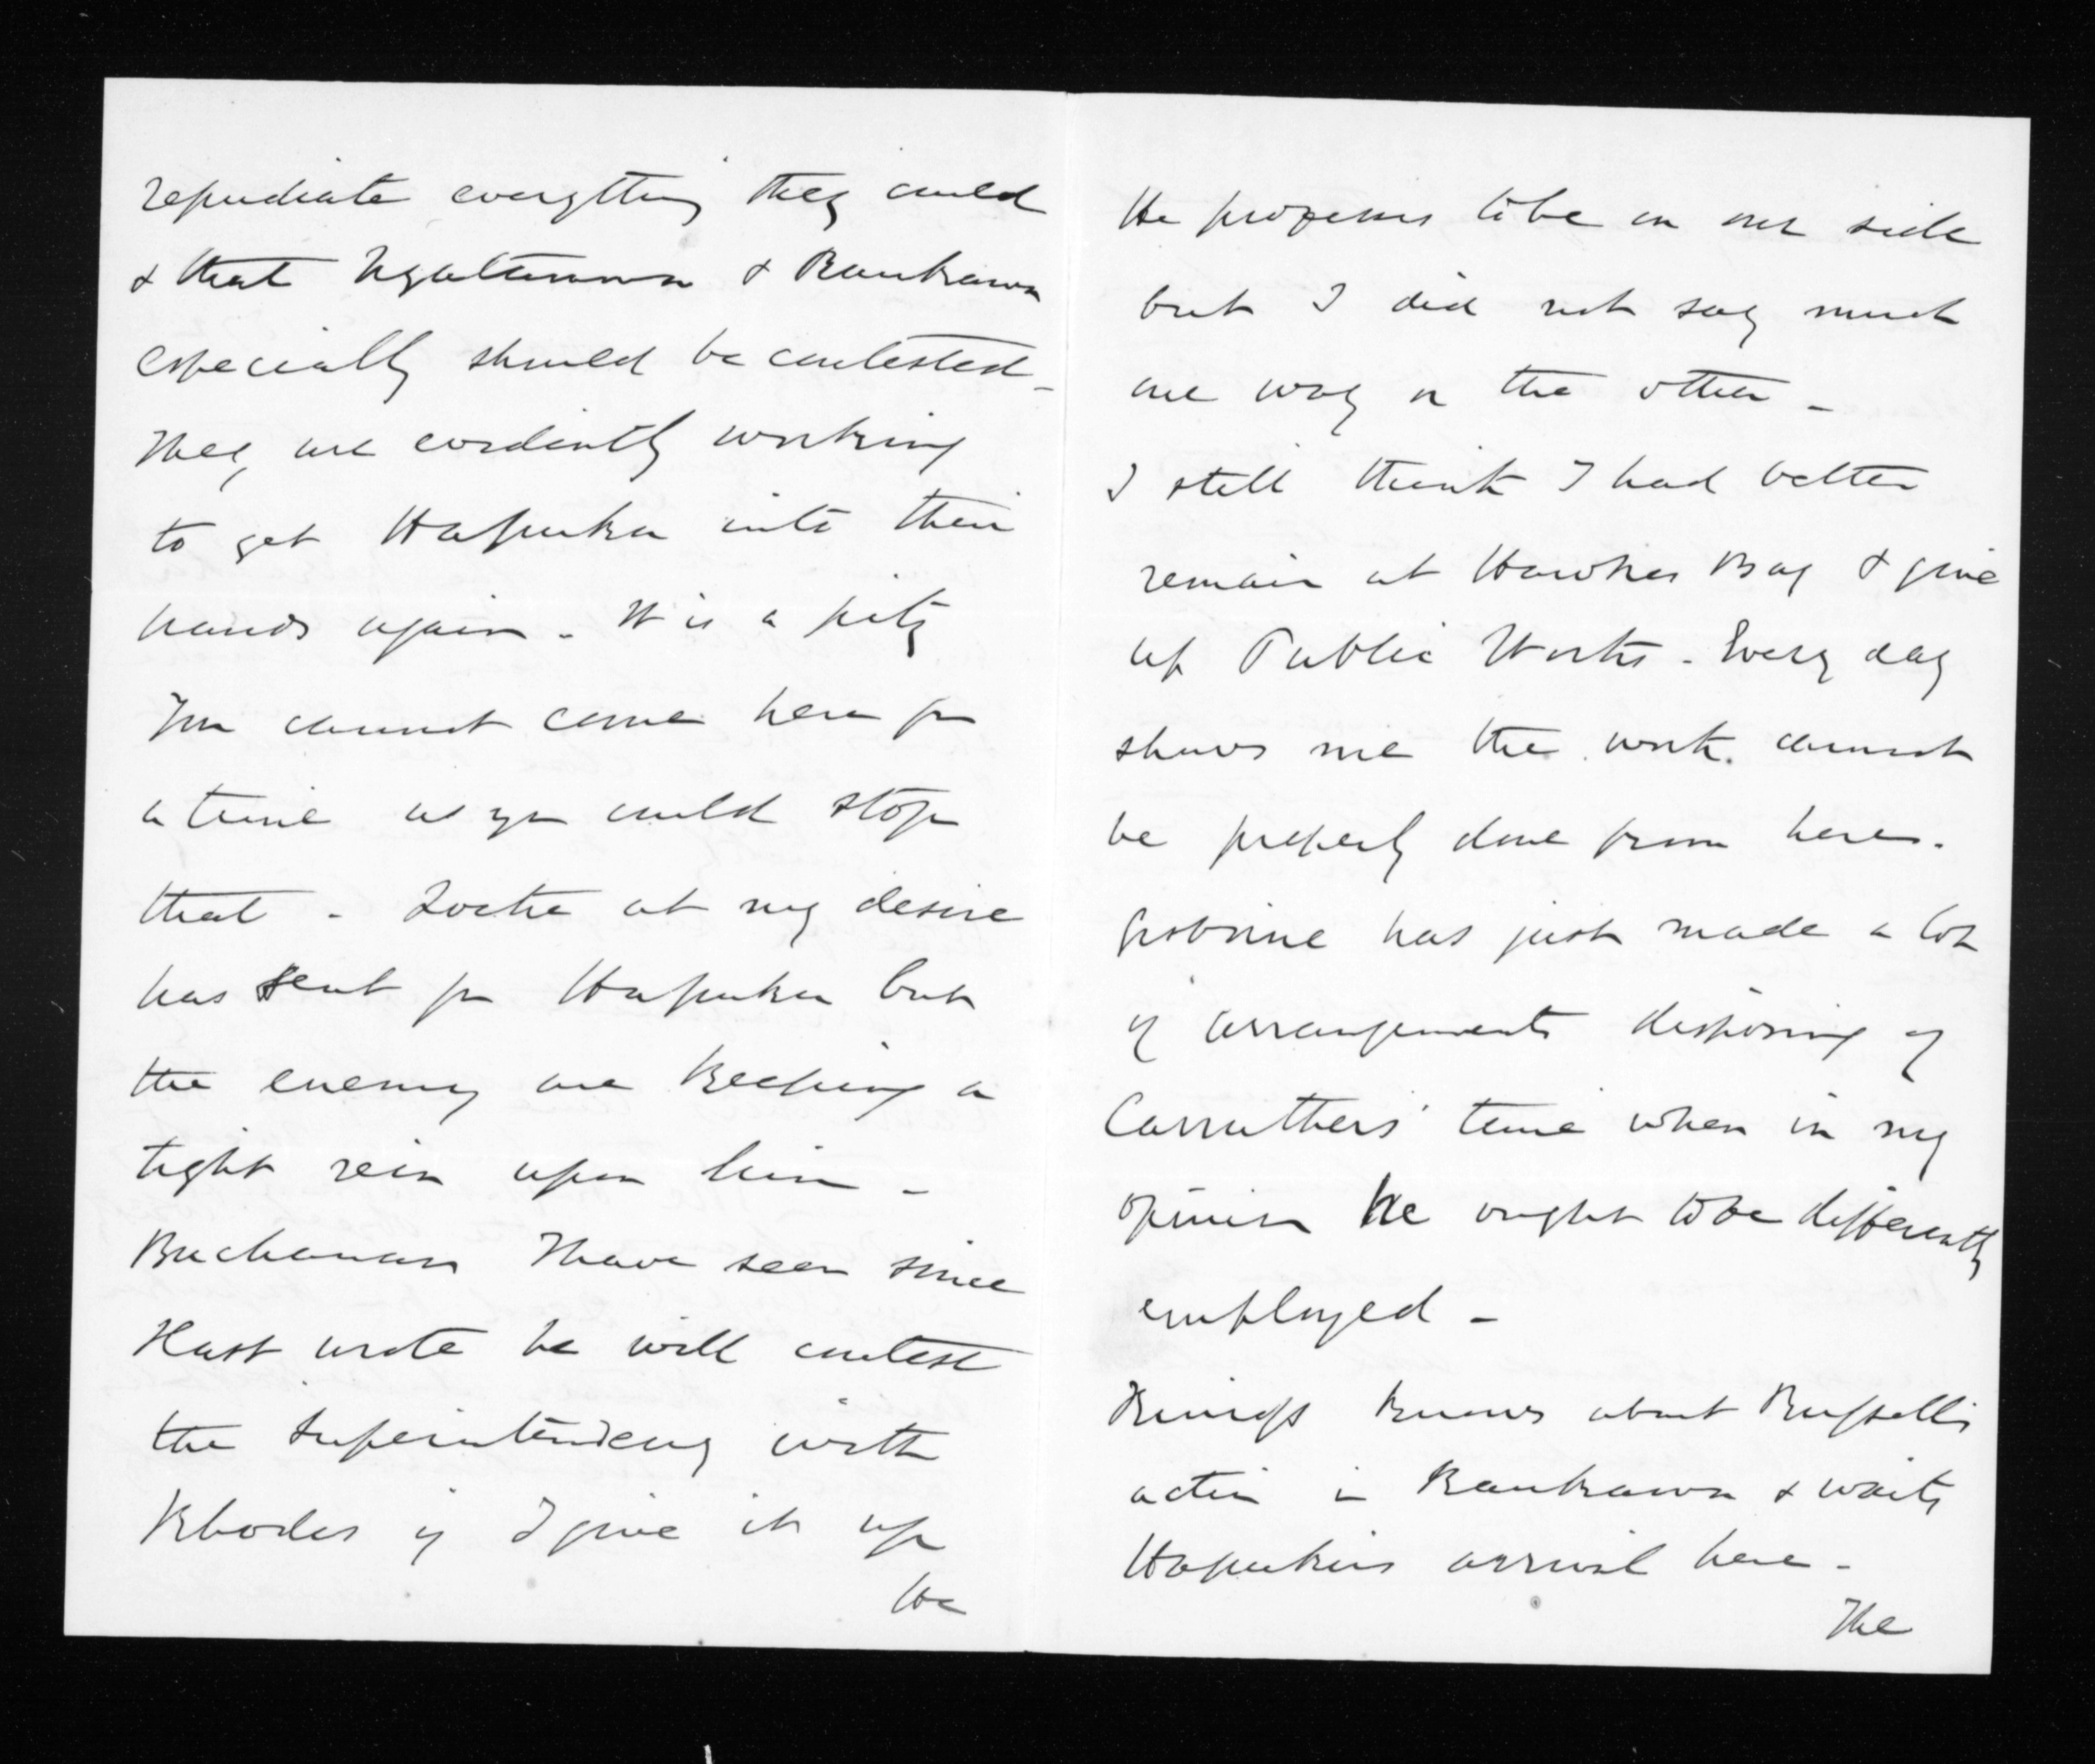 repudiate everything they could
& that Ngaltarawa & Raukawa
especially should be contested_
They are evidently working
to get Hapuka into their
hands again - It is a pity
You cannot come here for
a time as you could stop
that - Locke at my desire
has sent for Hapuka but
the enemy are keeping a
tight rein upon him -
Buchanan I have seen since
Hast wrote he will contest
the Superintendency with
Rhodes if I give it up
He
He proposes to be on our side
but I did not say much
one way or the other -
I still think I had better
remain at Hawkes Bay & give
up Public Works - Every day
shows me the work cannot
be properly done from here.
Gisborne has just made a lot
of arrangements disposing of
Carruthers' time when in my
opinion he ought to be differently
employed -
knows about Russell's
action in Raukawa & waits
Hapuka's arrival here -
The